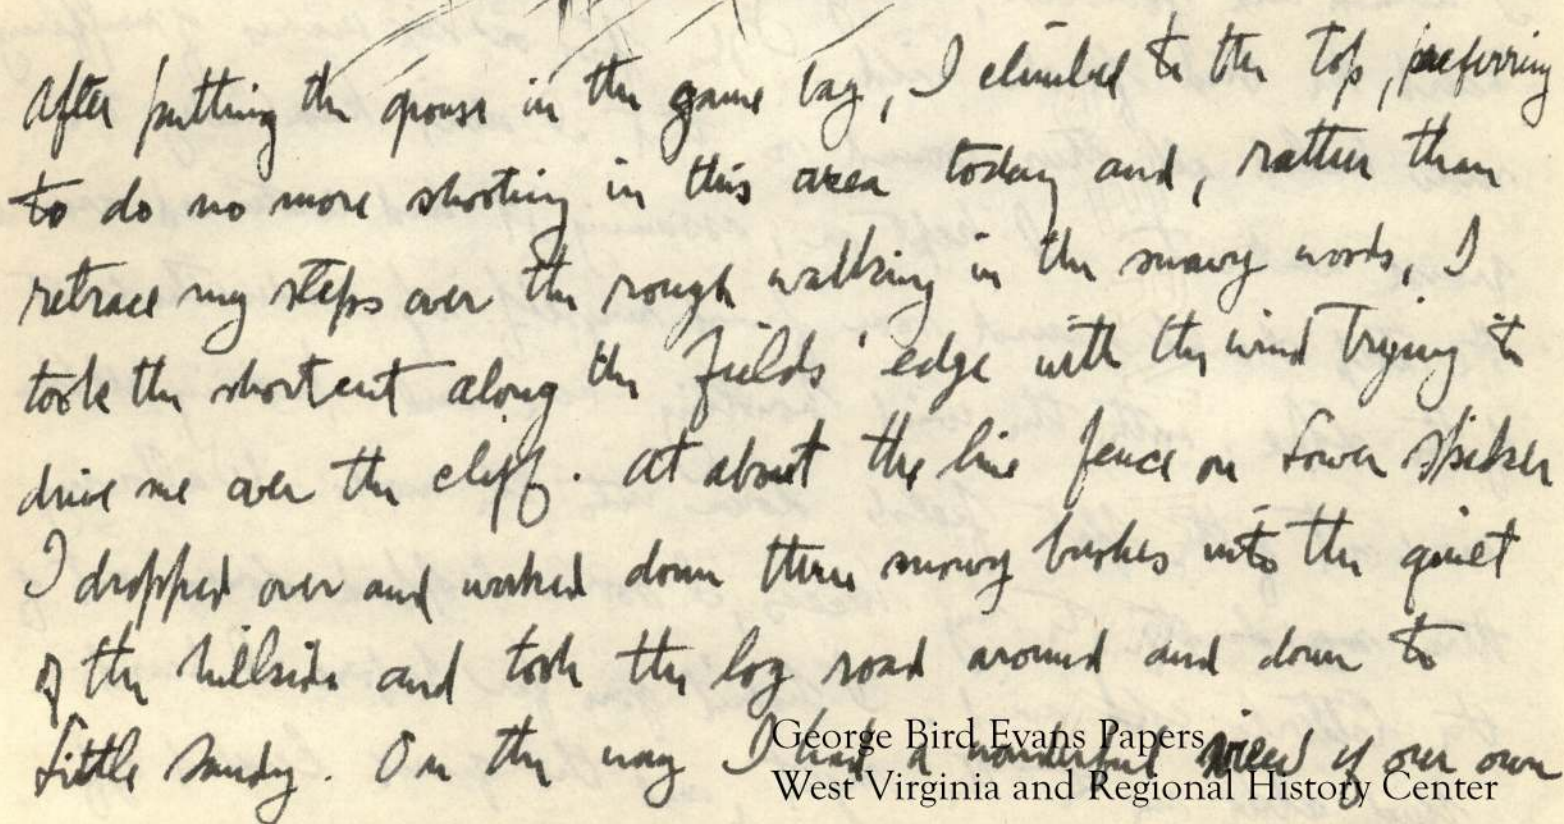 After putting the grouse in the game bag, I climbed to the top, preferring
to do no more shooting in this area today and, rather than
retrace my steps over the rough walking in the snowy woods, I
took the shortcut along the fields' edge with the wind trying to
drive me over the cliff. At about the line fence on Lower Spiker
I dropped over and worked down thru snowy bushes into the quiet
of the hillside and took the log road around and down to
Little Sandy. On the way I had a wonderful view of our own
George Bird Evans Papers
West Virginia and Regional History Center